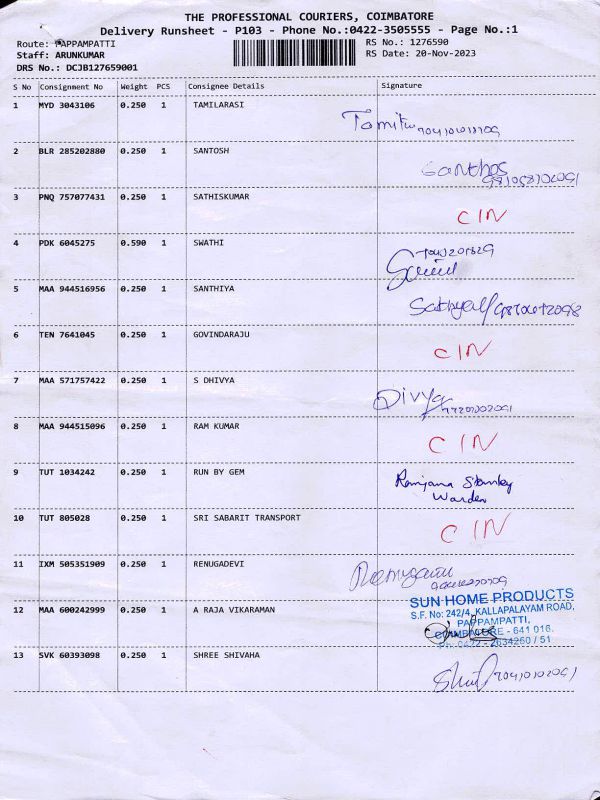 THE PROFESSIONAL COURIERS, COIMBATORE
Delivery Runsheet - P103 - Phone No.:0422-3505555 - Page No.:1
Route: PAPPAMPATTI RS No.: 1276590
Staff: ARUNKUMAR RS Date: 20-Nov-2023
DRS No.: DCJB127659001
S No Consignment No Weight PCS Consignee Details Signature
1 MYD 3043106 0.250 1 TAMILARASI
2 BLR 285202880 0.250 1 SANTOSH Santhos
3 PNQ 757077431 0.250 1 SATHISKUMAR CIN
4 PDK 6045275 0.590 1 SWATHI
5 MAA 944516956 0.250 1 SANTHIYA
6 TEN 7641045 0.250 1 GOVINDARAJU CIN
7 MAA 571757422 0.250 1 S DHIVYA Divya
8 MAA 944515096 0.250 1 RAM KUMAR CIN
9 TUT 1034242 0.250 1 RUN BY GEM Ranjana Stanley
Warden
10 TUT 805028 0.250 1 SRI SABARIT TRANSPORT CIN
11 IXM 505351909 0.250 1 RENUGADEVI
12 MAA 600242999 0.250 1 A RAJA VIKARAMAN SUN HOME PRODUCTS
S.F. No: 242/4, KALLAPALAYAM ROAD,
PAPPAMPATTI,
COIMBATORE - 641 016.
Ph: 0422 - 2634260 / 51
13 SVK 60393098 0.250 1 SHREE SHIVAHA